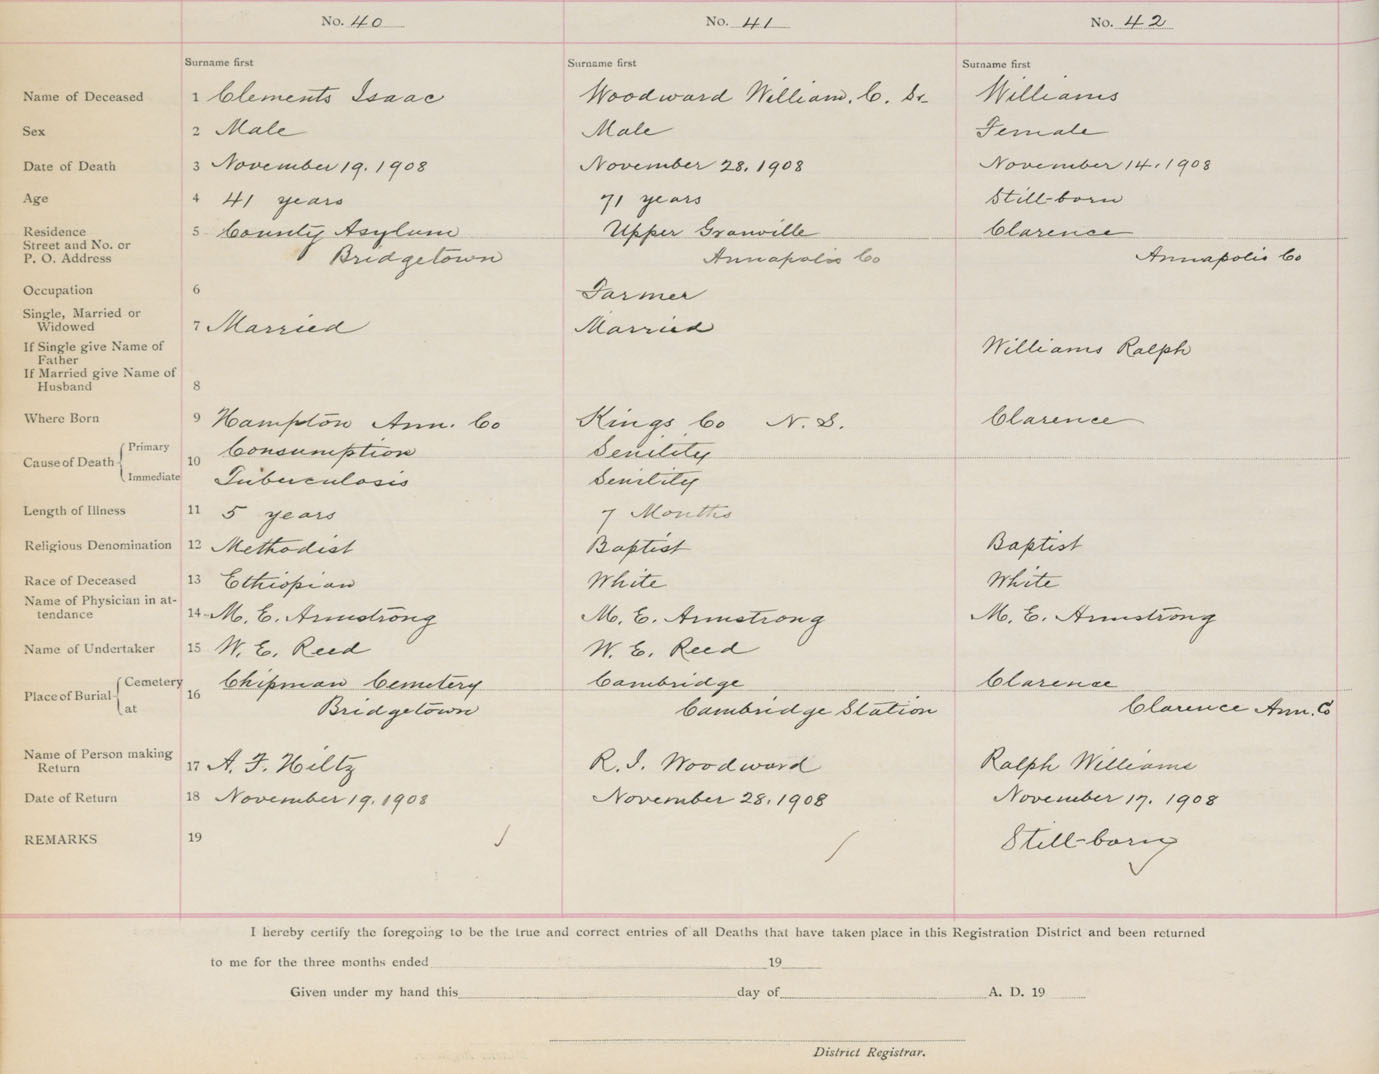 No. 40 No. 41 No. 42
Surname first Surname first Surname first
Name of Deceased 1 Clements Isaac Woodward William. C. Sr. Williams
Sex 2 Male Male Female
Date of Death 3 November 19. 1908 November 28. 1908 November 14. 1908
Age 4 41 years 71 years Still-born
Residence 5 County Asylum Upper Granville Clarence
Street and No. or
P. O. Address Bridgetown Annapolis Co Annapolis Co
Occupation 6 Farmer
Single, Married or
Widowed 7 Married Married
If Single give Name of
Father Williams Ralph
If Married give Name of
Husband 8
Where Born 9 Hampton Ann. Co Kings Co N. S. Clarence
Cause of Death Primary 10 Consumption Senility
Immediate Tuberculosis Senility
Length of Illness 11 5 years 7 Months
Religious Denomination 12 Methodist Baptist Baptist
Race of Deceased 13 Ethiopian White White
Name of Physician in at-
tendance 14 M. E. Armstrong M. E. Armstrong M. E. Armstrong
Name of Undertaker 15 W. E. Reed W. E. Reed
Place of Burial Cemetery 16 Chipman Cemetery Cambridge Clarence
at Bridgetown Cambridge Station Clarence Ann. Co
Name of Person making
Return 17 A. F. Hiltz R. I. Woodward Ralph Williams
Date of Return 18 November 19. 1908 November 28. 1908 November 17. 1908
REMARKS 19 Still-born
I hereby certify the foregoing to be the true and correct entries of all Deaths that have taken place in this Registration District and been returned
to me for the three months ended 19
Given under my hand this day of A. D. 19
District Registrar.